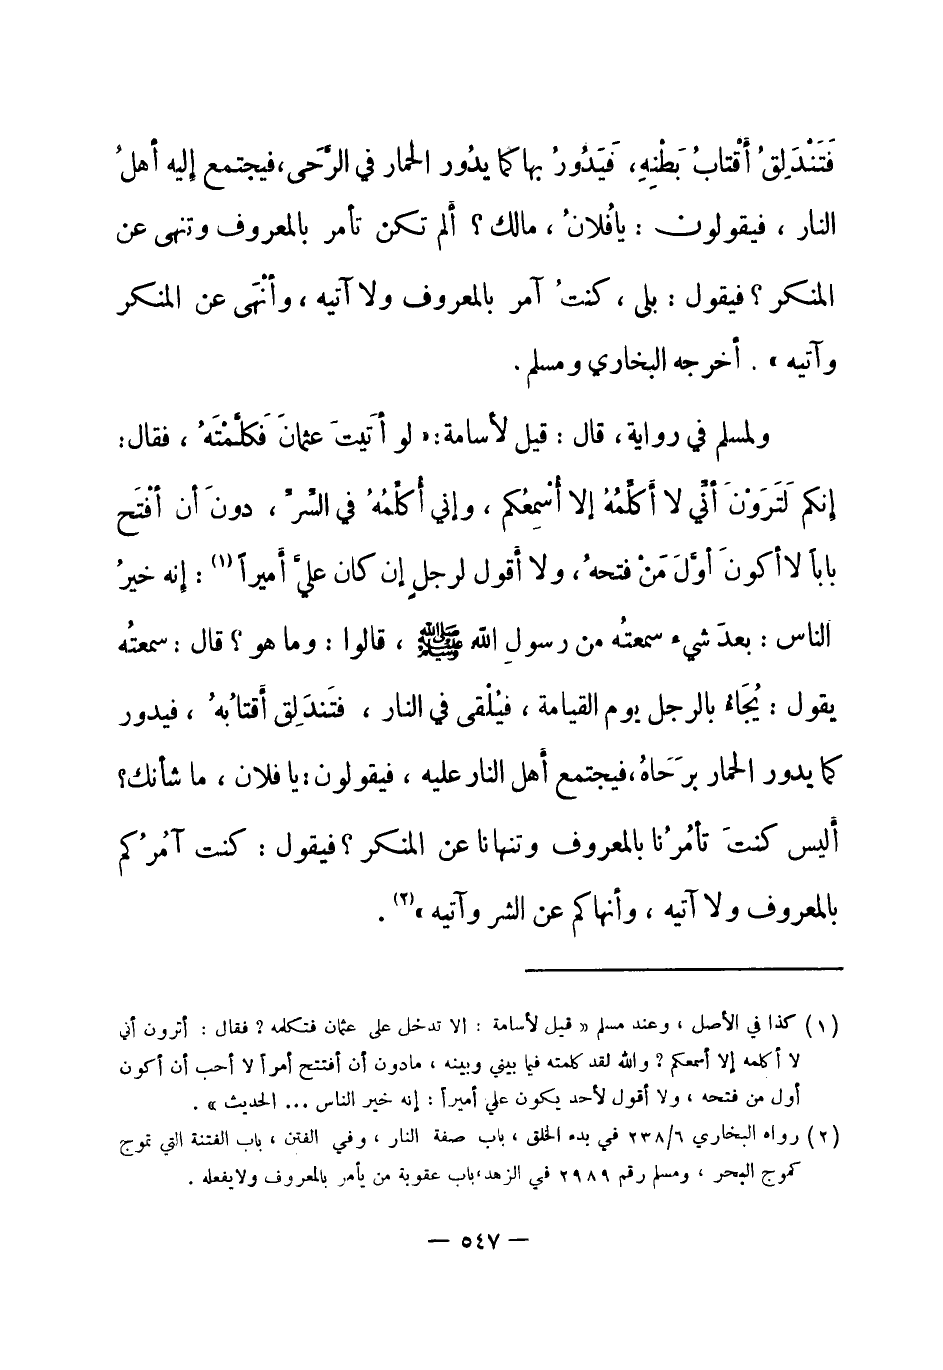 فَتَنْدَلِقُ أَقْتَابُ بَطْنِهِ، فَيَدُورُ بها كما يدُور الحمار في الرَّحَى، فيجتمع إليه أهلُ
النار ، فيقولون : يافُلانُ ، مالك ؟ ألم تكن تأمر بالمعروف وتنهى عن
المنكر ؟ فيقول : بلى ، كنتُ آمر بالمعروف ولا آتيه ، وأنْهَى عن المنكر
وآتيه » . أخرجه البخاري ومسلم .
ولمسلم في رواية، قال : قيل لأسامة: « لو أَتَيتَ عثمانَ فَكلَّمْتَهُ ، فقال:
إنكم لَتَرَوْنَ أنِّي لا أكلِّمُهُ إلا أُسْمِعُكم ، وإني أُكلِّمُهُ في السِّرِّ ، دونَ أن أفْتَح
باباً لا أكونَ أوَّلَ مَنْ فتحهُ ، ولا أقول لرجلٍ إن كان عليَّ أميراً (١) : إنه خيرُ
الناس : بعدَ شيء سمعتُه من رسولِ الله ﷺ ، قالوا : وما هو ؟ قال : سمعتُه
يقول : يُجَاءُ بالرجل يوم القيامة ، فيُلْقى في النار ، فتَندَلِق أقتابُهُ ، فيدور
كما يدور الحمار برَحَاهُ، فيجتمع أهل النار عليه ، فيقولون : يا فلان ، ما شأنك ؟
أليس كنتَ تأمُرُنا بالمعروف وتنهانا عن المنكر ؟ فيقول : كنت آمُرُكم
بالمعروف ولا آتيه ، وأنهاكم عن الشر وآتيه »(٢) .
(١) كذا في الأصل ، وعند مسلم « قيل لأسامة : ألا تدخل على عثمان فتكلمه ? فقال : أترون أني
لا أكلمه إلا أسمعكم ? والله لقد كلمته فيما بيني وبينه ، مادون أن أفتتح أمراً لا أحب أن أكون
أول من فتحه ، ولا أقول لأحد يكون علي أميراً : إنه خير الناس ... الحديث » .
(٢) رواه البخاري ٢٣٨/٦ في بدء الخلق ، باب صفة النار ، وفي الفتن ، باب الفتنة التي تموج
كموج البحر ، ومسلم رقم ٢٩٨٩ في الزهد ، باب عقوبة من يأمر بالمعروف ولايفعله .
— ٥٤٧ —